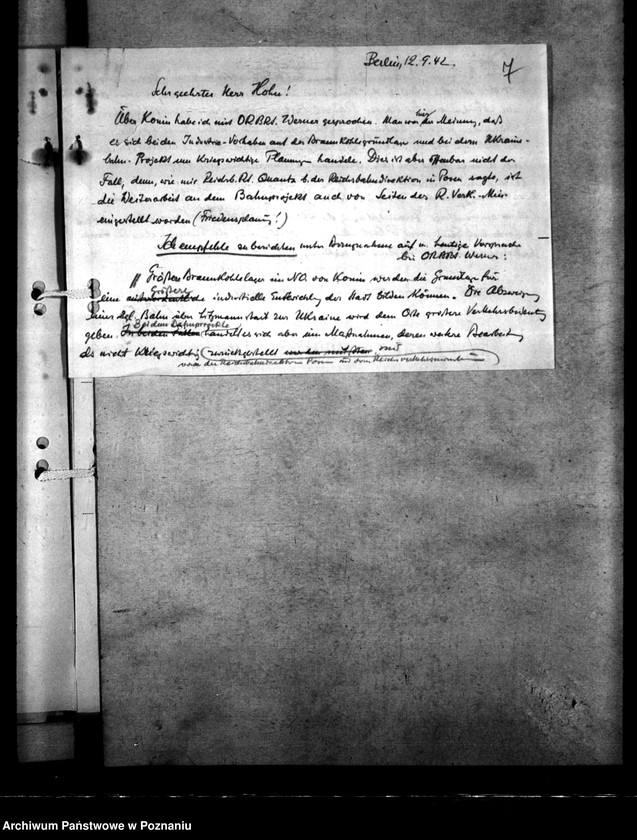 Berlin, 12.9.42.
7
Sehr geehrter Herr Hohn!
Über Konin habe ich mit ORBR. Werner gesprochen. Man war hier der Meinung, daß
es sich bei den Industrie-Vorhaben auf der Braunkohlegrundlage und bei dem Ukraine-
bahn-Projekt um kriegswichtige Planung handele. Dies ist aber offenbar nicht der
Fall, denn, wie mir Reichsb. Rt. Quanta b. der Reichsbahndirektion in Posen sagte, ist
die Weiterarbeit an dem Bahnprojekt auch von Seiten des R. Verk.-Min.
eingestellt worden (Friedensplanung!)
Ich empfehle zu berichten unter Bezugnahme auf m. heutige Vorsprache
bei ORBR. Werner:
"Größere Braunkohlelager im NO. von Konin werden die Grundlage für
eine größere industrielle Entwicklung der Stadt bilden können. Die Abzweigung
einer Bahn über Litzmannstadt zur Ukraine wird dem Orte größere Verkehrsbedeutung
geben. Bei dem Bahnprojekte handelt es sich aber um Maßnahmen, deren weitere Bearbeitung
als nicht kriegswichtig zurückgestellt
von der Reichsbahndirektion Posen und dem Reichsverkehrsministerium
Archiwum Państwowe w Poznaniu